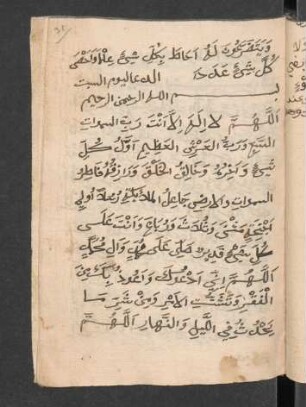 ويتضرعون له احاط بكل شيء علما واحصى
كل شيء عددا الدعا ليوم السبت
بسم الله الرحمن الرحيم
اللهم لا اله الا انت رب السموات
السبع ورب العرش العظيم اول كل
شيء واخره وخالق الخلق ورازقه فاطر
السموات والارض جاعل الملائكة رسلا اولي
اجنحة مثنى وثلاث ورباع وانت على
كل شيء قدير صلي على محمد وال محمد
اللهم اني ادعوك واعوذ بك من
الفقر وتشتت الامر ومن شر ما
يحدث في الليل والنهار اللهم